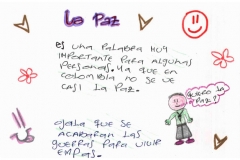 La Paz
es una palabra muy
importante para algunas
personas. Ya que en
colombia no se ve
casi la Paz.
quiero la
paz?
ojala que se
acabaran las
guerras para vivir
empas.